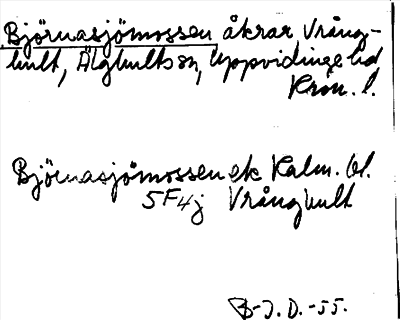 Björnasjömossen åkrar Vrång-
hult, Älghults sn, Uppvidinge hd
Kron. l.
Björnasjömossen ek Kalm. bl.
5F4j Vrånghult
B-J. D. -55.